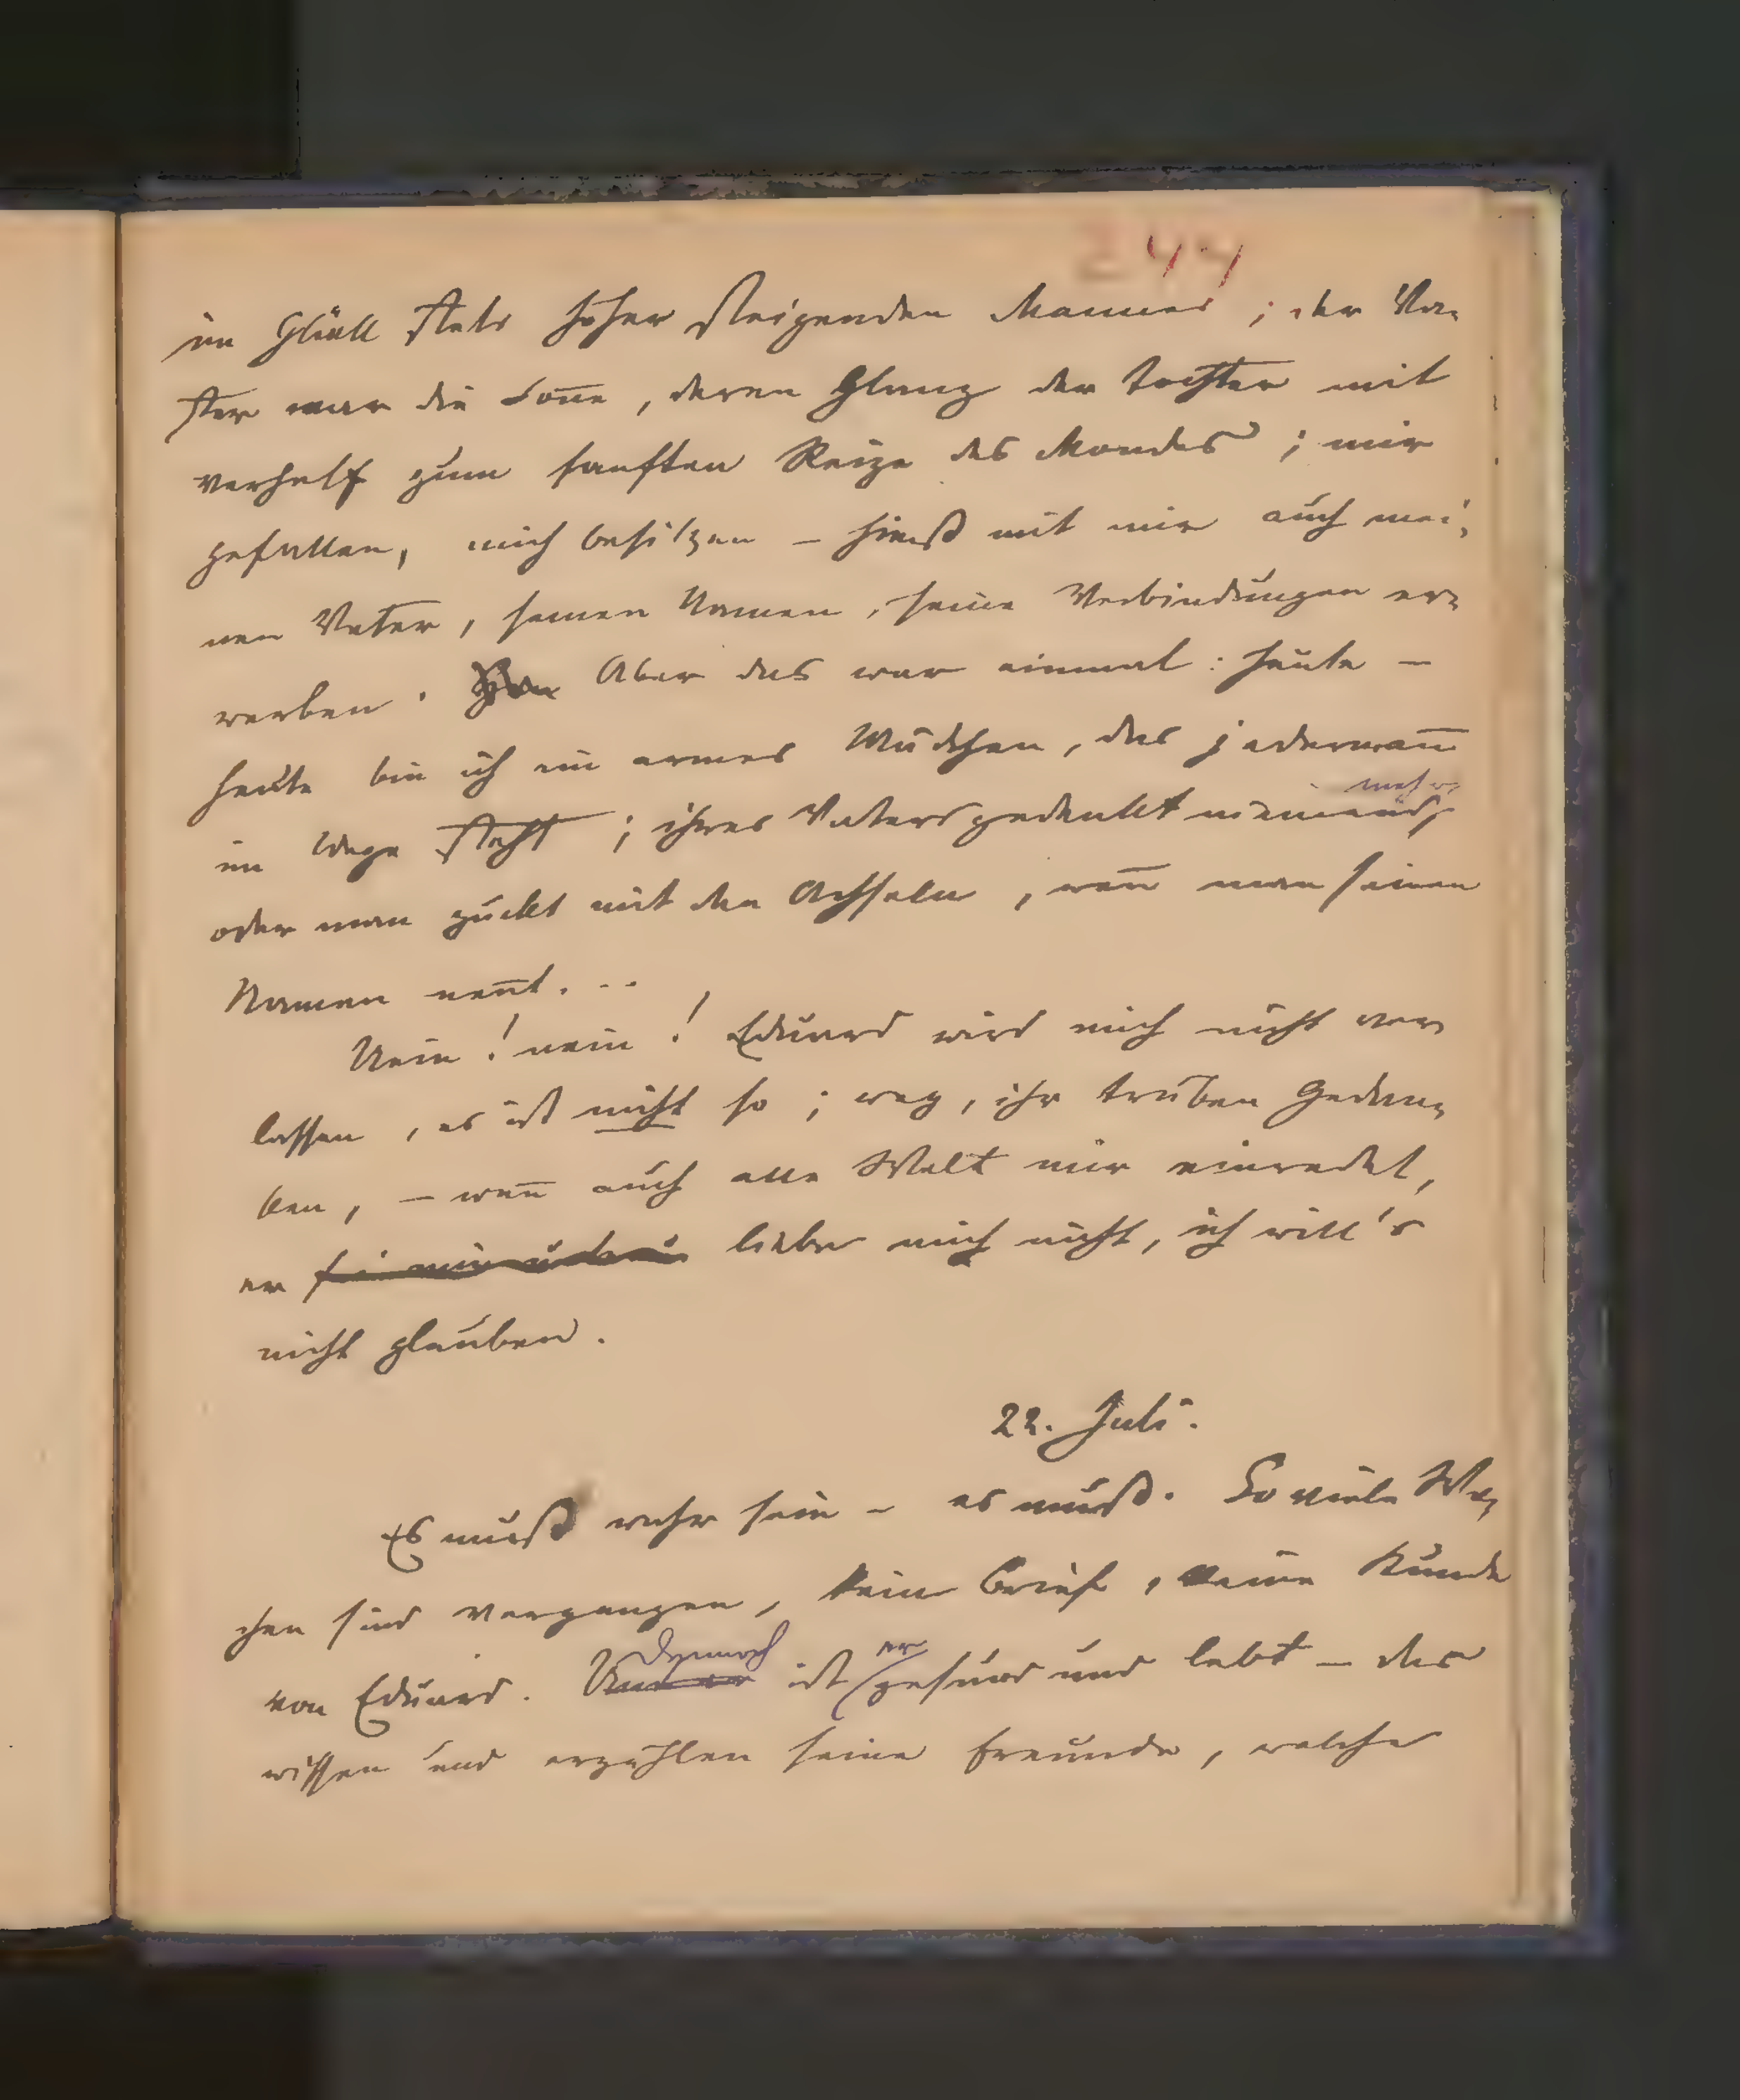 244
im Glück stets höher steigenden Mannes; der Va-
ter war die Soñe, deren Glanz der Tochter mit
verhalf zum sanften Reize des Mondes; mir
gefallen, mich besitzen – hieß mit mir auch mei-
nen Vater, seinen Namen, seine Verbindungen er-
werben. Aber das war einmal: heute –
heute bin ich ein armes Mädchen, das jedermañ
im Wege steht; ihres Vaters gedenkt niemand
mehr,
oder man zuckt mit den Achseln, weñ man seinen
Namen neñt. . .
Nein! nein! Eduard wird mich nicht ver-
lassen, es ist nicht so; weg, ihr trüben Gedan-
ken, – weñ auch alle Welt mir einredet,
er liebe mich nicht, ich will's
nicht glauben.
22. Juli.
Es muß wahr sein – es muß. So viele Wo-
chen sind vergangen, kein Brief, keine Kunde
von Eduard. Dennoch ist er gesund und lebt – das
wissen und erzählen seine Freunde, welche